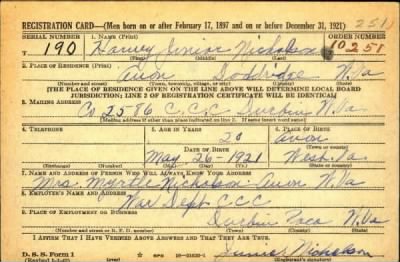 REGISTRATION CARD—(Men born on or after February 17, 1897 and on or before December 31, 1921)
SERIAL NUMBER 1. NAME (Print) ORDER NUMBER
190 Harvey Junior Nicholson 10251
2. PLACE OF RESIDENCE (Print)
Avon Doddridge W.Va
(Number and street) (Town, township, village, or city) (County) (State)
[THE PLACE OF RESIDENCE GIVEN ON THE LINE ABOVE WILL DETERMINE LOCAL BOARD
JURISDICTION; LINE 2 OF REGISTRATION CERTIFICATE WILL BE IDENTICAL]
3. MAILING ADDRESS
Co 2586 C.C.C. Durbin W.Va
[Mailing address if other than place indicated on line 2. If same insert word same]
4. TELEPHONE 5. AGE IN YEARS 6. PLACE OF BIRTH
20 Avon
DATE OF BIRTH (Town or county)
May 26 - 1921 West. Va.
(Exchange) (Number) (Mo.) (Day) (Yr.) (State or country)
7. NAME AND ADDRESS OF PERSON WHO WILL ALWAYS KNOW YOUR ADDRESS
Mrs. Myrtle Nicholson Avon W.Va
8. EMPLOYER'S NAME AND ADDRESS
War Dept CCC
9. PLACE OF EMPLOYMENT OR BUSINESS
Durbin Poca W.Va
(Number and street or R. F. D. number) (Town) (County) (State)
I AFFIRM THAT I HAVE VERIFIED ABOVE ANSWERS AND THAT THEY ARE TRUE.
D. S. S. Form 1 Junior Nicholson